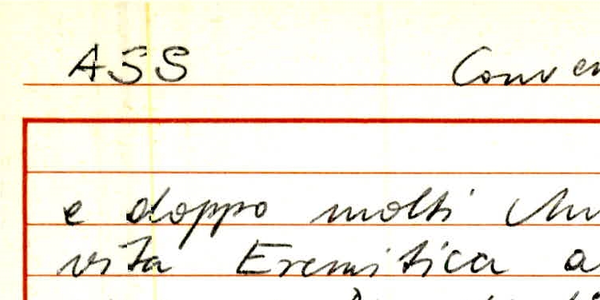 ASS
e doppo molti
vita Eremitica